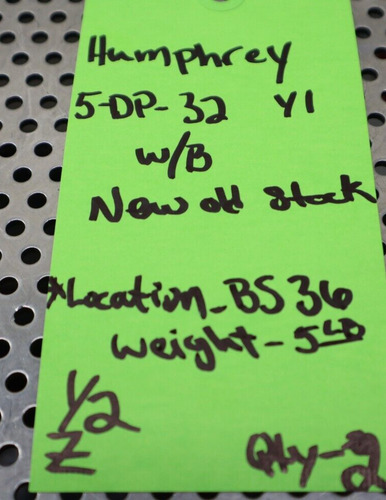 Humphrey
5-DP-32 Y1
w/B
New old stock
*Location-BS36
Weight-5LB
Y2
Z
Qty-2